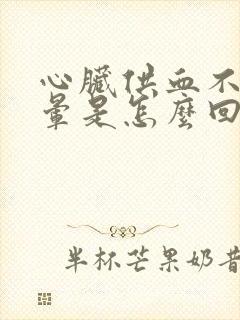 心臟供血不
暈是怎麼回
半杯芒果奶昔